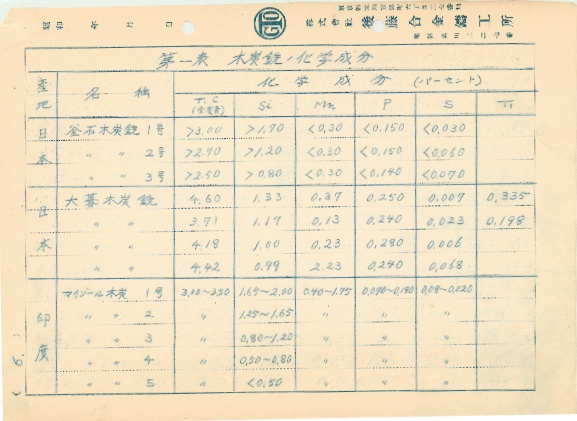 昭和 年 月 日
GTO
株式會社 後藤合金鑄工所
第一表 木炭銑ノ化学成分
産地 名称 化学成分 (パーセント)
T.C (全炭素) Si Mn P S Ti
日本 釜石木炭銑 1号 >3.00 >1.70 <0.30 <0.150 <0.030
〃 〃 2号 >2.70 >1.20 <0.30 <0.150 <0.060
〃 〃 3号 >2.50 >0.80 <0.30 <0.140 <0.070
日本 大暮木炭銑 4.60 1.33 0.37 0.250 0.007 0.335
〃 〃 3.71 1.17 0.13 0.240 0.023 0.198
〃 〃 4.18 1.00 0.23 0.280 0.006
〃 〃 4.42 0.99 2.23 0.240 0.068
印度 マイゾール木炭 1号 3.00~3.50 1.65~2.00 0.40~1.75 0.090~0.180 0.08~0.020
〃 〃 2 〃 1.25~1.65 〃 〃 〃
〃 〃 3 〃 0.80~1.20 〃 〃 〃
〃 〃 4 〃 0.50~0.80 〃 〃 〃
〃 〃 5 〃 <0.50 〃 〃 〃